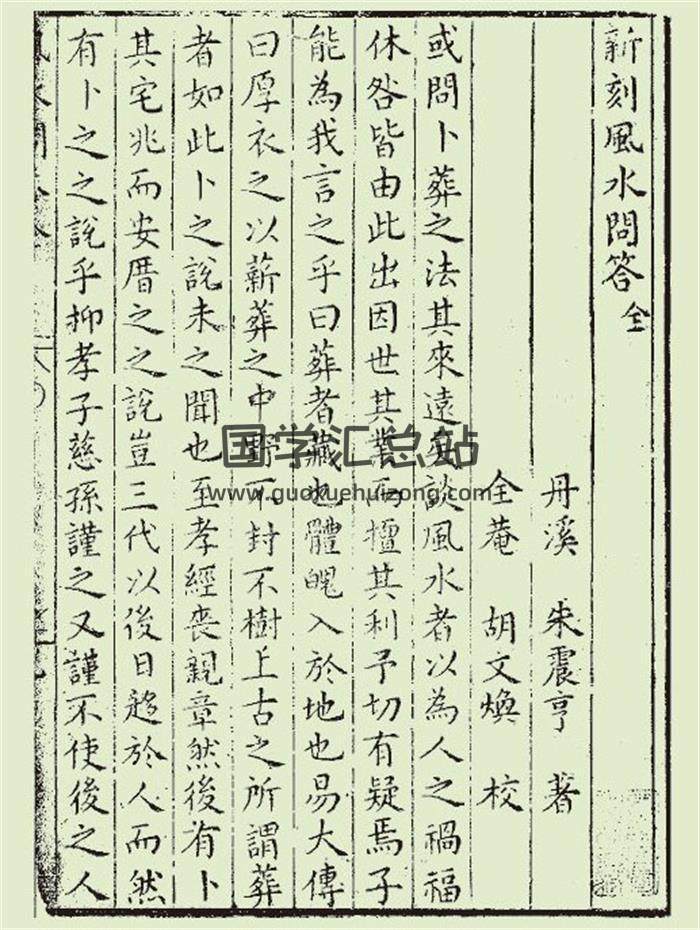 新刻風水問答 全
丹溪 朱震亨 著
全菴 胡文煥 校
或問卜葬之法其來遠矣談風水者以為人之禍福
休咎皆由此出因世其業而擅其利予切有疑焉子
能為我言之乎曰葬者藏也體魄入於地也易大傳
曰厚衣之以薪葬之中野不封不樹上古之所謂葬
者如此卜之說未之聞也至孝經喪親章然後有卜
其宅兆而安厝之之說豈三代以後日趨於人而然
有卜之之說乎抑孝子慈孫謹之又謹不使後之人
国学汇总站
www.guoxuehuizong.com